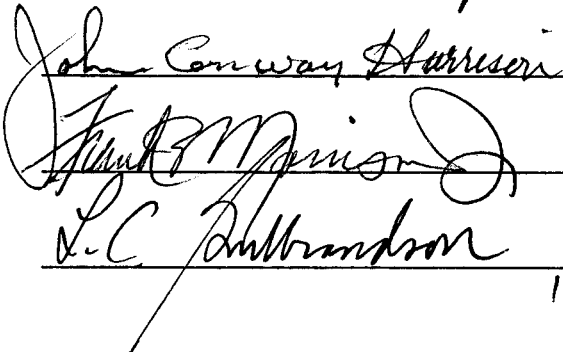 John Conway Harrison
Frank B Morrison Jr
L. C. Gulbrandson